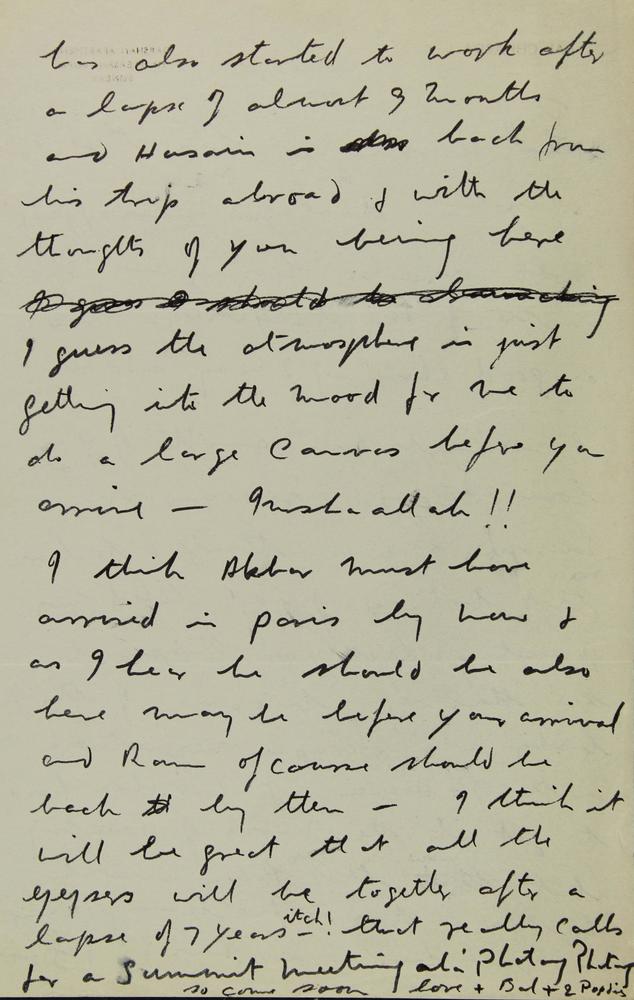 has also started to work after
a lapse of almost 9 months
and Husain is back from
his trip abroad & with the
thoughts of you being here
I guess the atmosphere is just
getting into the mood for me to
do a large Canvas before you
arrive — Inshaallah!!
I think Akbar must have
arrived in paris by now &
as I hear he should be also
here may be before your arrival
and Ram of course should be
back by then — I think it
will be great that all the
geysers will be together after a
lapse of 7 years – itch! that really calls
for a Summit meeting
so come soon love + Bal +